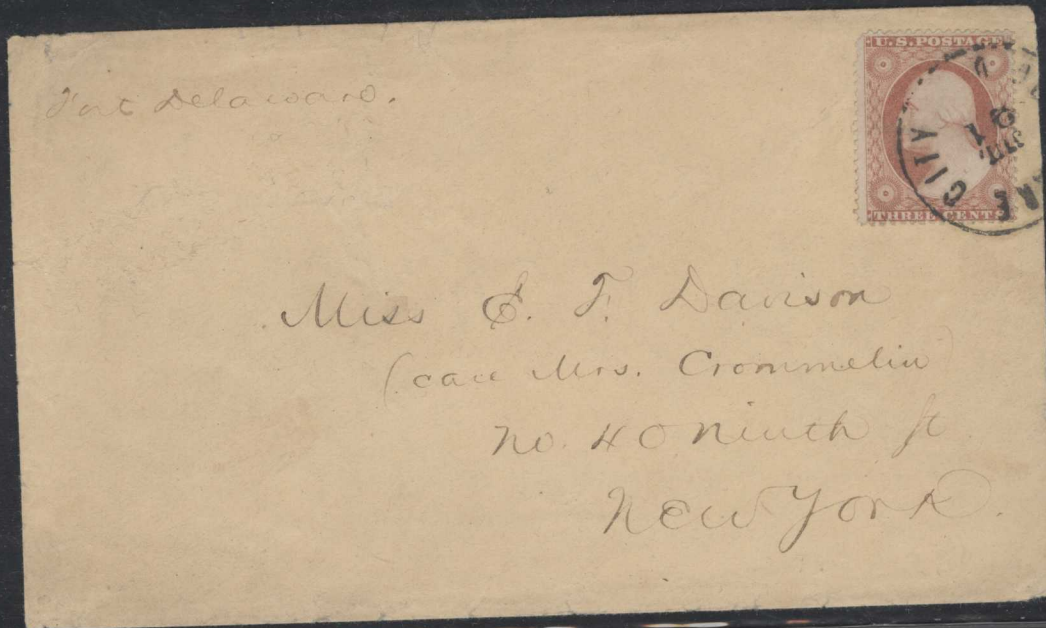 Fort Delaware.
U.S. POSTAGE
THREE CENTS
CITY
JUL
Miss E. F. Davison
(care Mrs. Crommelin)
No. 40 Ninth St.
New York.